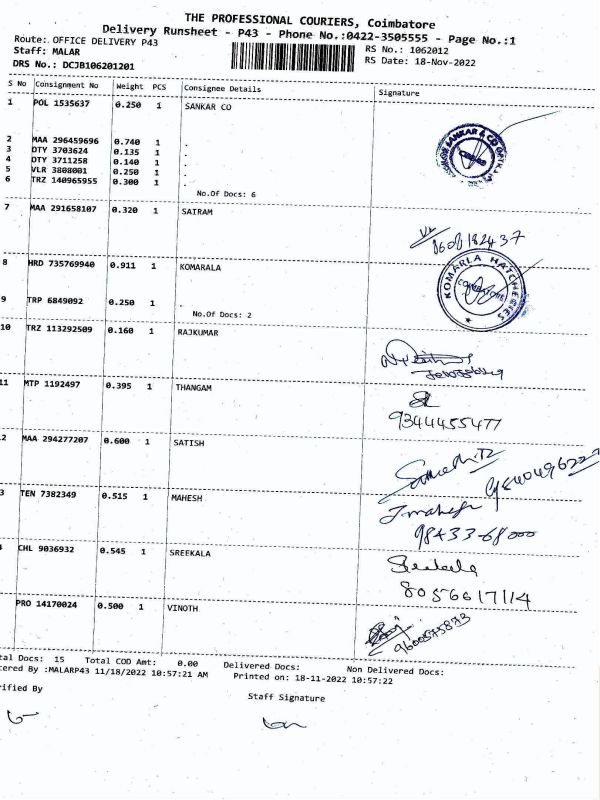 THE PROFESSIONAL COURIERS, Coimbatore
Delivery Runsheet - P43 - Phone No.:0422-3505555 - Page No.:1
Route: OFFICE DELIVERY P43
Staff: MALAR
DRS No.: DCJB106201201
RS No.: 1062012
RS Date: 18-Nov-2022
S No Consignment No Weight PCS Consignee Details Signature
1 POL 1535637 0.250 1 SANKAR CO
2 MAA 296459696 0.740 1 .
3 DTY 3703624 0.135 1 .
4 DTY 3711258 0.140 1 .
5 VLR 3808001 0.250 1 .
6 TRZ 140965955 0.300 1 .
No.Of Docs: 6
7 MAA 291658107 0.320 1 SAIRAM
8 HRD 735769940 0.911 1 KOMARALA
KOMARLA HATCHERIES
COIMBATORE
9 TRP 6849092 0.250 1 .
No.Of Docs: 2
10 TRZ 113292509 0.160 1 RAJKUMAR
11 MTP 1192497 0.395 1 THANGAM
9344455477
2 MAA 294277207 0.600 1 SATISH
3 TEN 7382349 0.515 1 MAHESH
J mahesh
98433-68000
CHL 9036932 0.545 1 SREEKALA
Sreekala
8056617114
PRO 14170024 0.500 1 VINOTH
9600575873
tal Docs: 15 Total COD Amt: 0.00 Delivered Docs: Non Delivered Docs:
tered By :MALARP43 11/18/2022 10:57:21 AM Printed on: 18-11-2022 10:57:22
rified By
Staff Signature